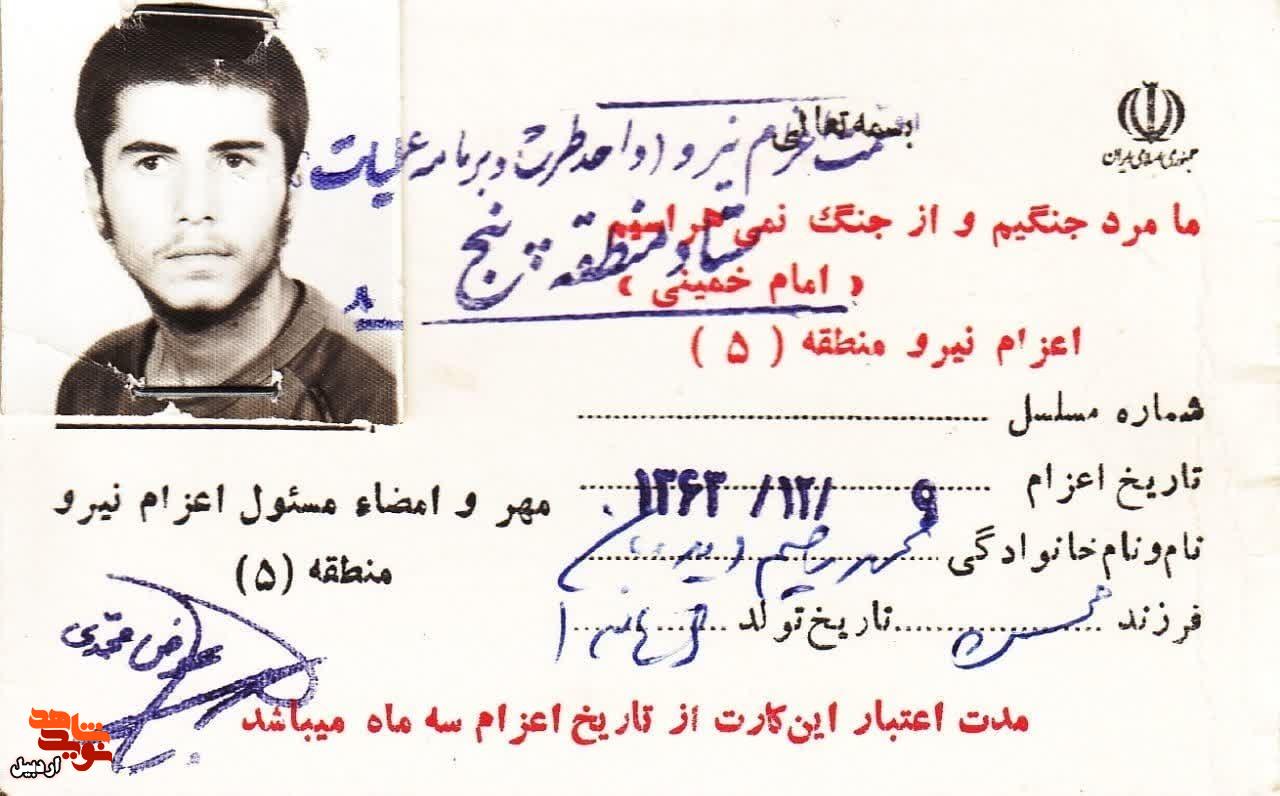 جمهوری اسلامی ایران
بسمه تعالی
اعزام نیرو (واحد طرح و برنامه عملیات
ستاد منطقه پنج
ما مرد جنگیم و از جنگ نمی هراسیم
« امام خمینی »
۸
اعزام نیرو منطقه ( ۵ )
شماره مسلسل
تاریخ اعزام ۹ /۱۲/ ۱۳۶۳
نام و نام خانوادگی محمد رحیم
فرزند تاریخ تولد
مهر و امضاء مسئول اعزام نیرو
منطقه (۵)
عوض محمدی
مدت اعتبار این کارت از تاریخ اعزام سه ماه میباشد
نوید شاهد
اردبیل